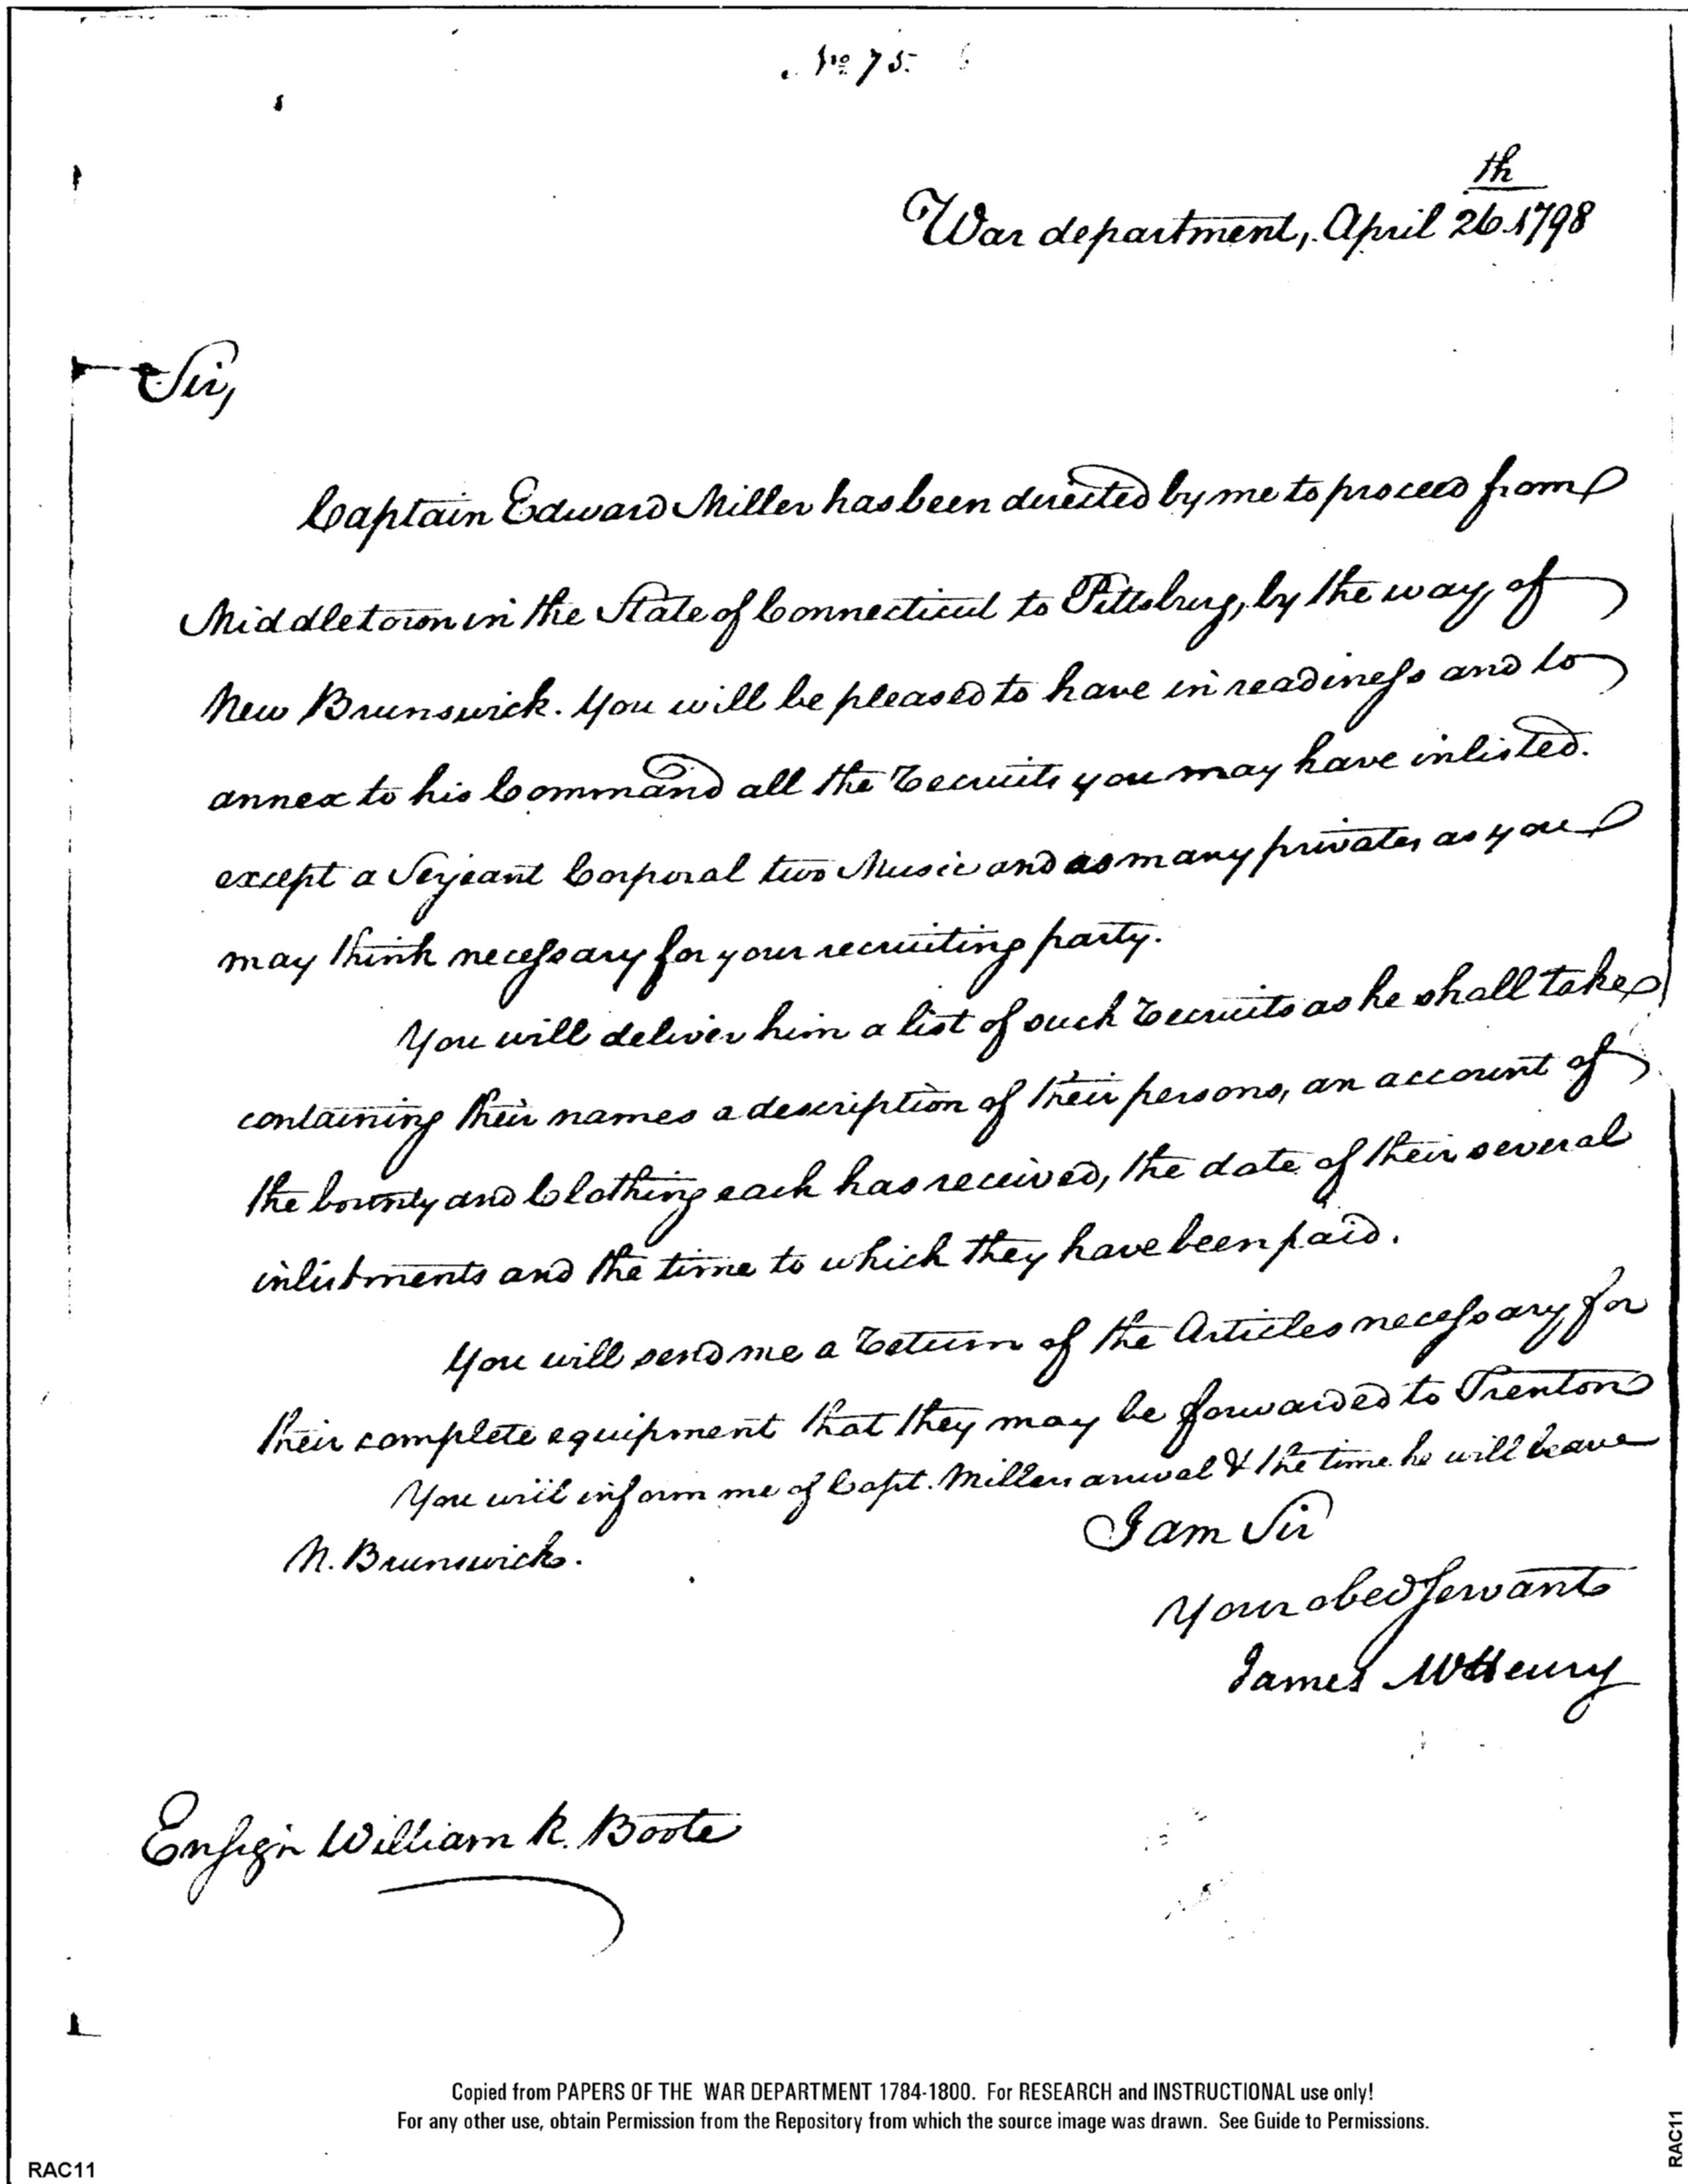 No 75.
th
War department, April 26. 1798
Sir,
Captain Edward Miller has been directed by me to proceed from
Middletown in the State of Connecticut to Pittsburg, by the way of
New Brunswick. You will be pleased to have in readiness and to
annex to his Command all the Recruits you may have inlisted.
except a Serjeant Corporal two Music and as many privates as you
may think necessary for your recruiting party.
You will deliver him a list of such Recruits as he shall take
containing their names a description of their persons, an account of
the bounty and Clothing each has received, the date of their several
inlistments and the time to which they have been paid.
You will send me a Return of the Articles necessary for
their complete equipment that they may be forwarded to Trenton
You will inform me of Capt. Millers arival & the time he will leave
N. Brunswick.
I am Sir
Your obed Servant
James McHenry
Ensign William R. Boote
Copied from PAPERS OF THE WAR DEPARTMENT 1784-1800. For RESEARCH and INSTRUCTIONAL use only!
For any other use, obtain Permission from the Repository from which the source image was drawn. See Guide to Permissions.
RAC11
RAC11